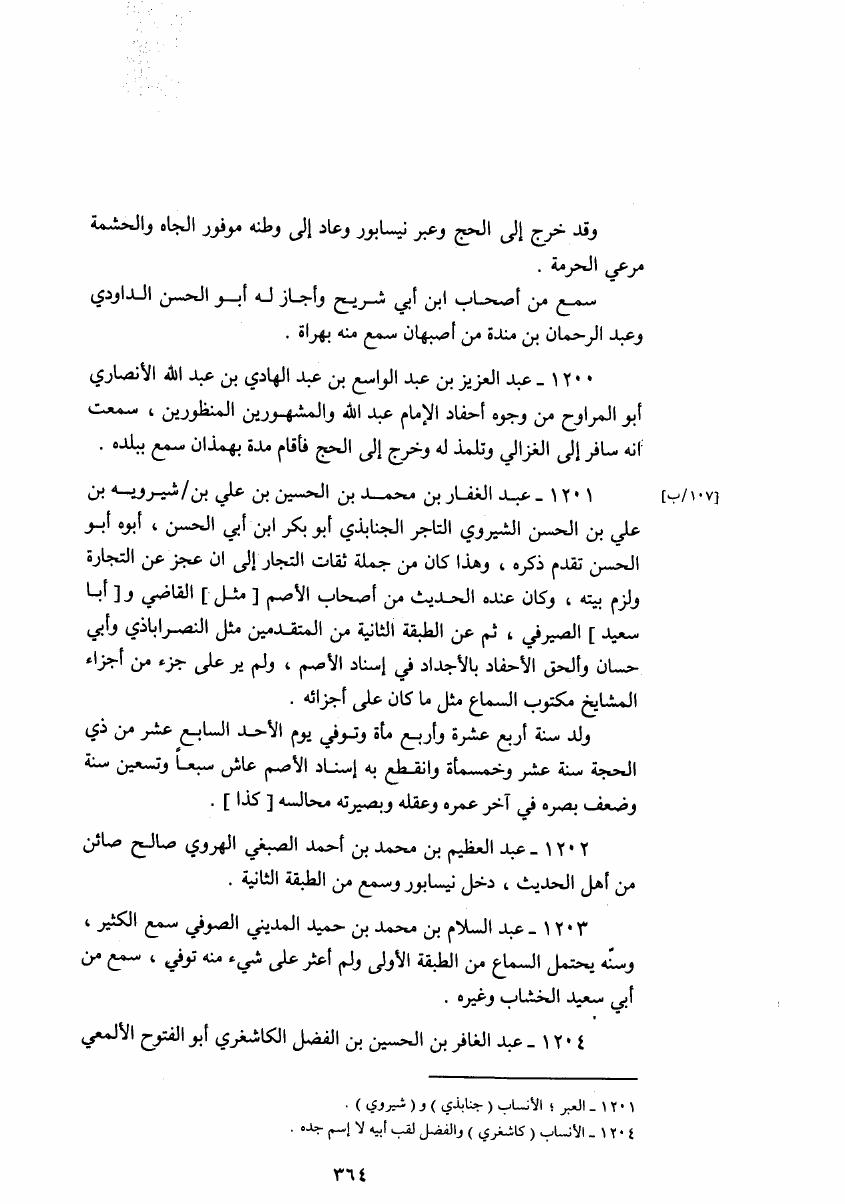 وقد خرج إلى الحج وعبر نيسابور وعاد إلى وطنه موفور الجاه والحشمة
مرعي الحرمة .
سمع من أصحاب ابن أبي شريح وأجاز له أبو الحسن الداودي
وعبد الرحمان بن مندة من أصبهان سمع منه بهراة .
١٢٠٠ ـ عبد العزيز بن عبد الواسع بن عبد الهادي بن عبد الله الأنصاري
أبو المراوح من وجوه أحفاد الإمام عبد الله والمشهورين المنظورين ، سمعت
انه سافر إلى الغزالي وتلمذ له وخرج إلى الحج فأقام مدة بهمذان سمع ببلده .
١٢٠١ ـ عبد الغفار بن محمد بن الحسين بن علي بن/شيرويه بن [١٠٧/ب]
علي بن الحسن الشيروي التاجر الجنابذي أبو بكر ابن أبي الحسن ، أبوه أبو
الحسن تقدم ذكره ، وهذا كان من جملة ثقات التجار إلى ان عجز عن التجارة
ولزم بيته ، وكان عنده الحديث من أصحاب الأصم [ مثل ] القاضي و[ أبا
سعيد ] الصيرفي ، ثم عن الطبقة الثانية من المتقدمين مثل النصراباذي وأبي
حسان وألحق الأحفاد بالأجداد في إسناد الأصم ، ولم ير على جزء من أجزاء
المشايخ مكتوب السماع مثل ما كان على أجزائه .
ولد سنة أربع عشرة وأربع مأة وتوفي يوم الأحد السابع عشر من ذي
الحجة سنة عشر وخمسمأة وانقطع به إسناد الأصم عاش سبعاً وتسعين سنة
وضعف بصره في آخر عمره وعقله وبصيرته محالسه [ كذا ] .
١٢٠٢ ـ عبد العظيم بن محمد بن أحمد الصبغي الهروي صالح صائن
من أهل الحديث ، دخل نيسابور وسمع من الطبقة الثانية .
١٢٠٣ ـ عبد السلام بن محمد بن حميد المديني الصوفي سمع الكثير ،
وسنّه يحتمل السماع من الطبقة الأولى ولم أعثر على شيء منه توفي ، سمع من
أبي سعيد الخشاب وغيره .
١٢٠٤ ـ عبد الغافر بن الحسين بن الفضل الكاشغري أبو الفتوح الألمعي
١٢٠١ ـ العبر ؛ الأنساب ( جنابذي ) و ( شيروي ) .
١٢٠٤ ـ الأنساب ( كاشغري ) والفضل لقب أبيه لا إسم جده .
٣٦٤